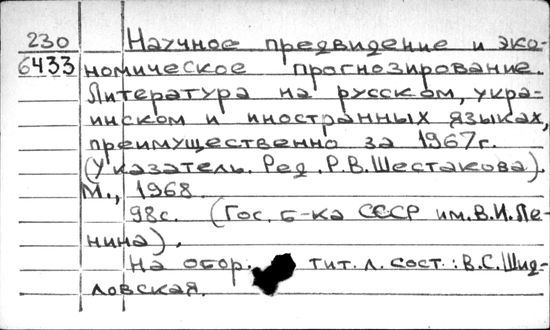 230 Научное предвидение и эко-
6433 номическое прогнозирование.
Литература на русском, укра-
инском и иностранных языках,
преимущественно за 1967г.
(Указатель. Ред. Р.В.Шестакова).
М., 1968.
98с. (Гос. б-ка СССР им.В.И.Ле-
нина).
На обор. тит. л. сост.: В.С.Шид-
ловская.